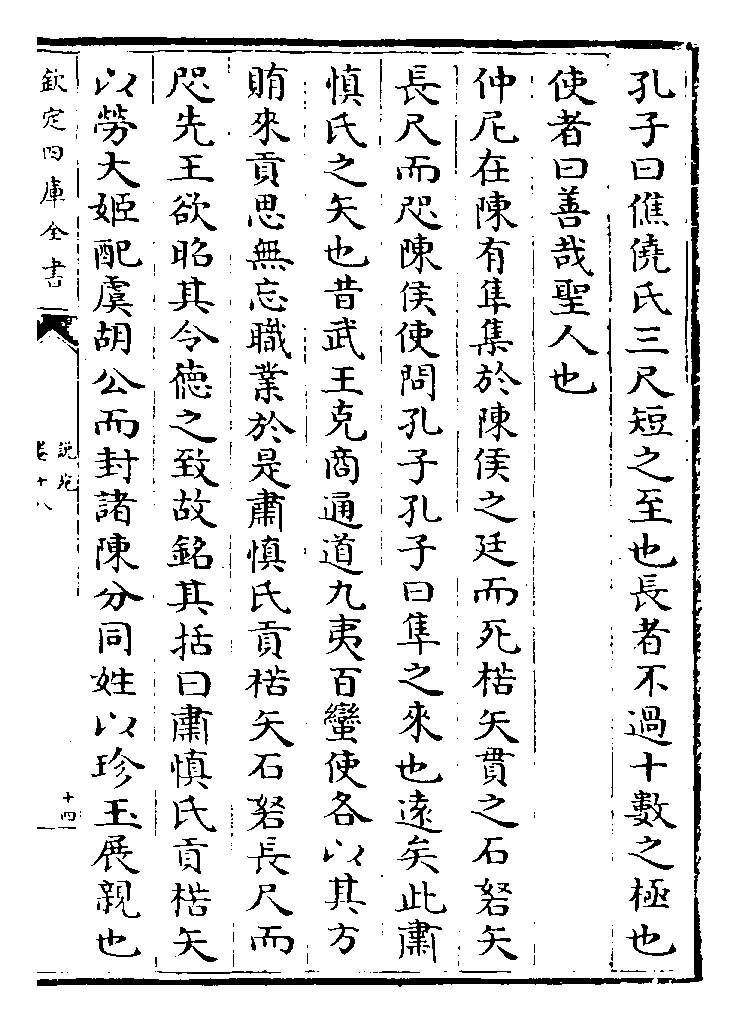 孔子曰僬僥氏三尺短之至也長者不過十數之極也
使者曰善哉聖人也
仲尼在陳有隼集於陳侯之廷而死楛矢貫之石砮矢
長尺而咫陳侯使問孔子孔子曰隼之來也遠矣此肅
慎氏之矢也昔武王克商通道九夷百蠻使各以其方
賄來貢思無忘職業於是肅慎氏貢楛矢石砮長尺而
咫先王欲昭其令德之致故銘其括曰肅慎氏貢楛矢
以勞大姬配虞胡公而封諸陳分同姓以珍玉展親也
欽定四庫全書
說苑
卷十八
十四